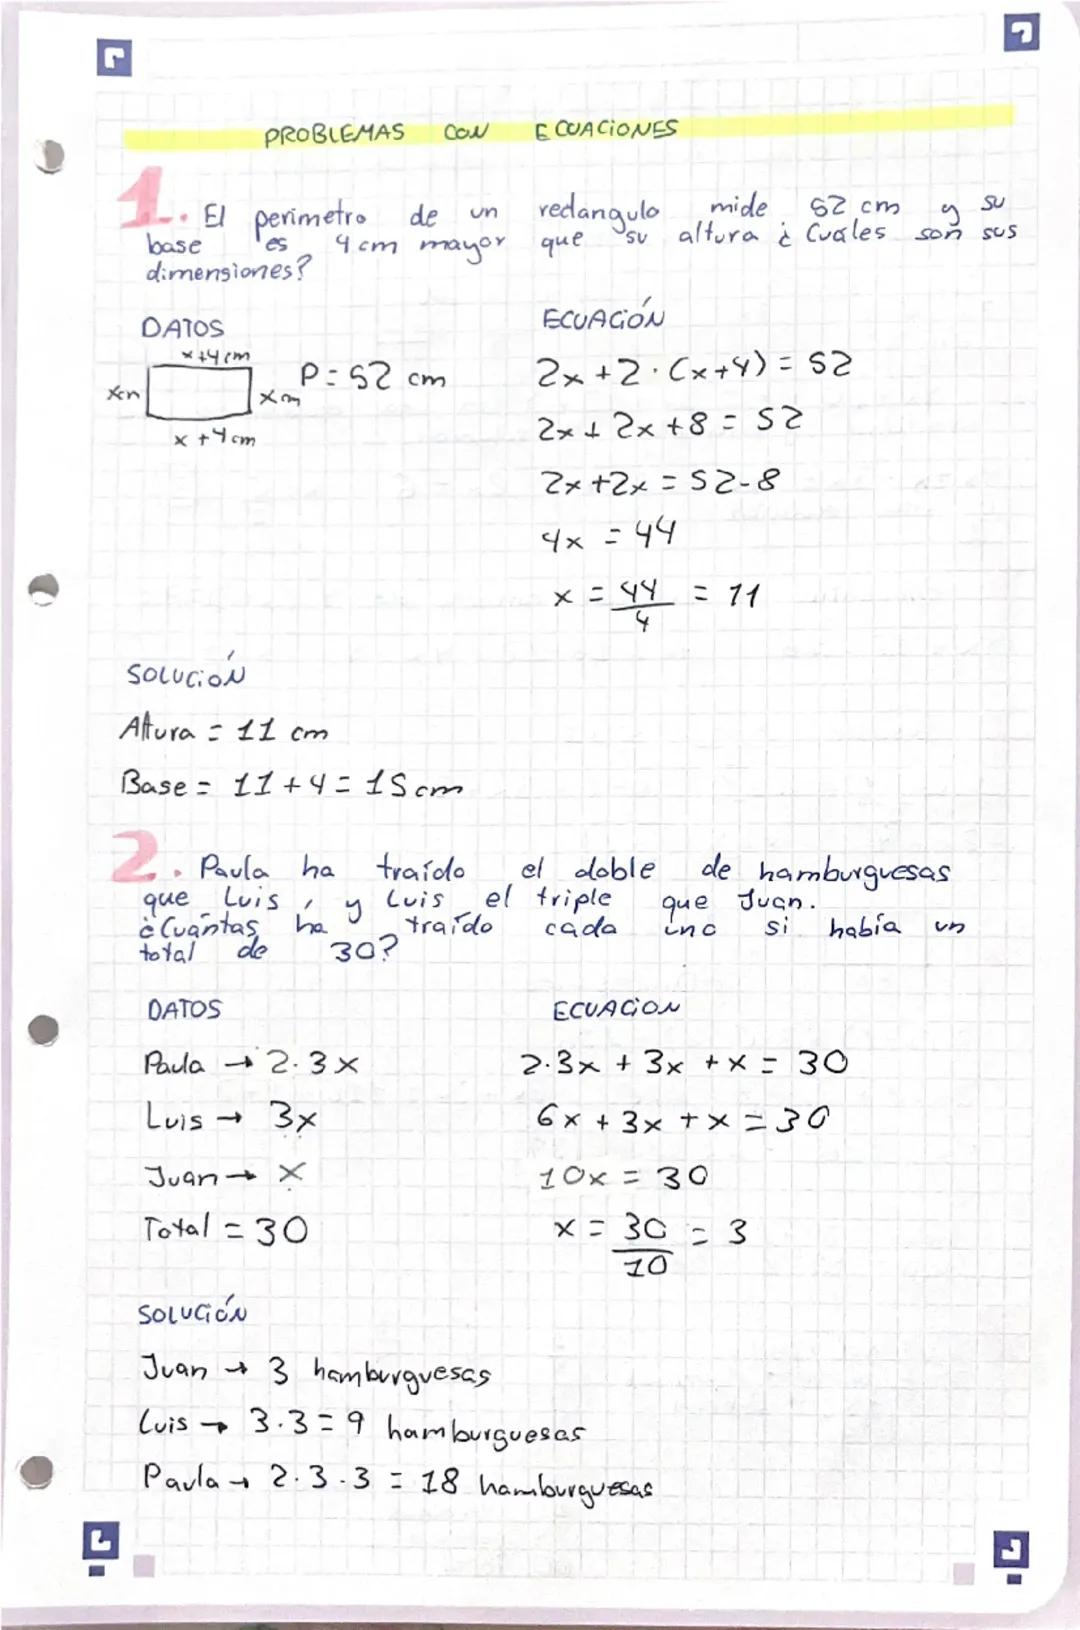 PROBLEMAS CON ECUACIONES
1. El perimetro de un rectangulo mide 52 cm y su
base es 4 cm mayor que su altura ¿Cuales son sus
dimensiones?
DATOS
x+4cm
xm
xm
P = 52 cm
x+4cm
ECUACIÓN
2x+2·(x+4) = 52
2x+2x+8 = 52
2x+2x = 52-8
4x = 44
x = 44/4 = 11
SOLUCIÓN
Altura = 11 cm
Base = 11+4 = 15cm
2. Paula ha traído el doble de hamburguesas
que Luis, y Luis el triple que Juan.
¿Cuántas ha traído cada uno si había un
total de 30?
DATOS
Paula → 2·3x
Luis → 3x
Juan → x
Total = 30
ECUACION
2·3x + 3x + x = 30
6x + 3x + x = 30
10x = 30
x = 30/10 = 3
SOLUCIÓN
Juan → 3 hamburguesas
Luis → 3·3 = 9 hamburguesas
Paula → 2·3·3 = 18 hamburguesas